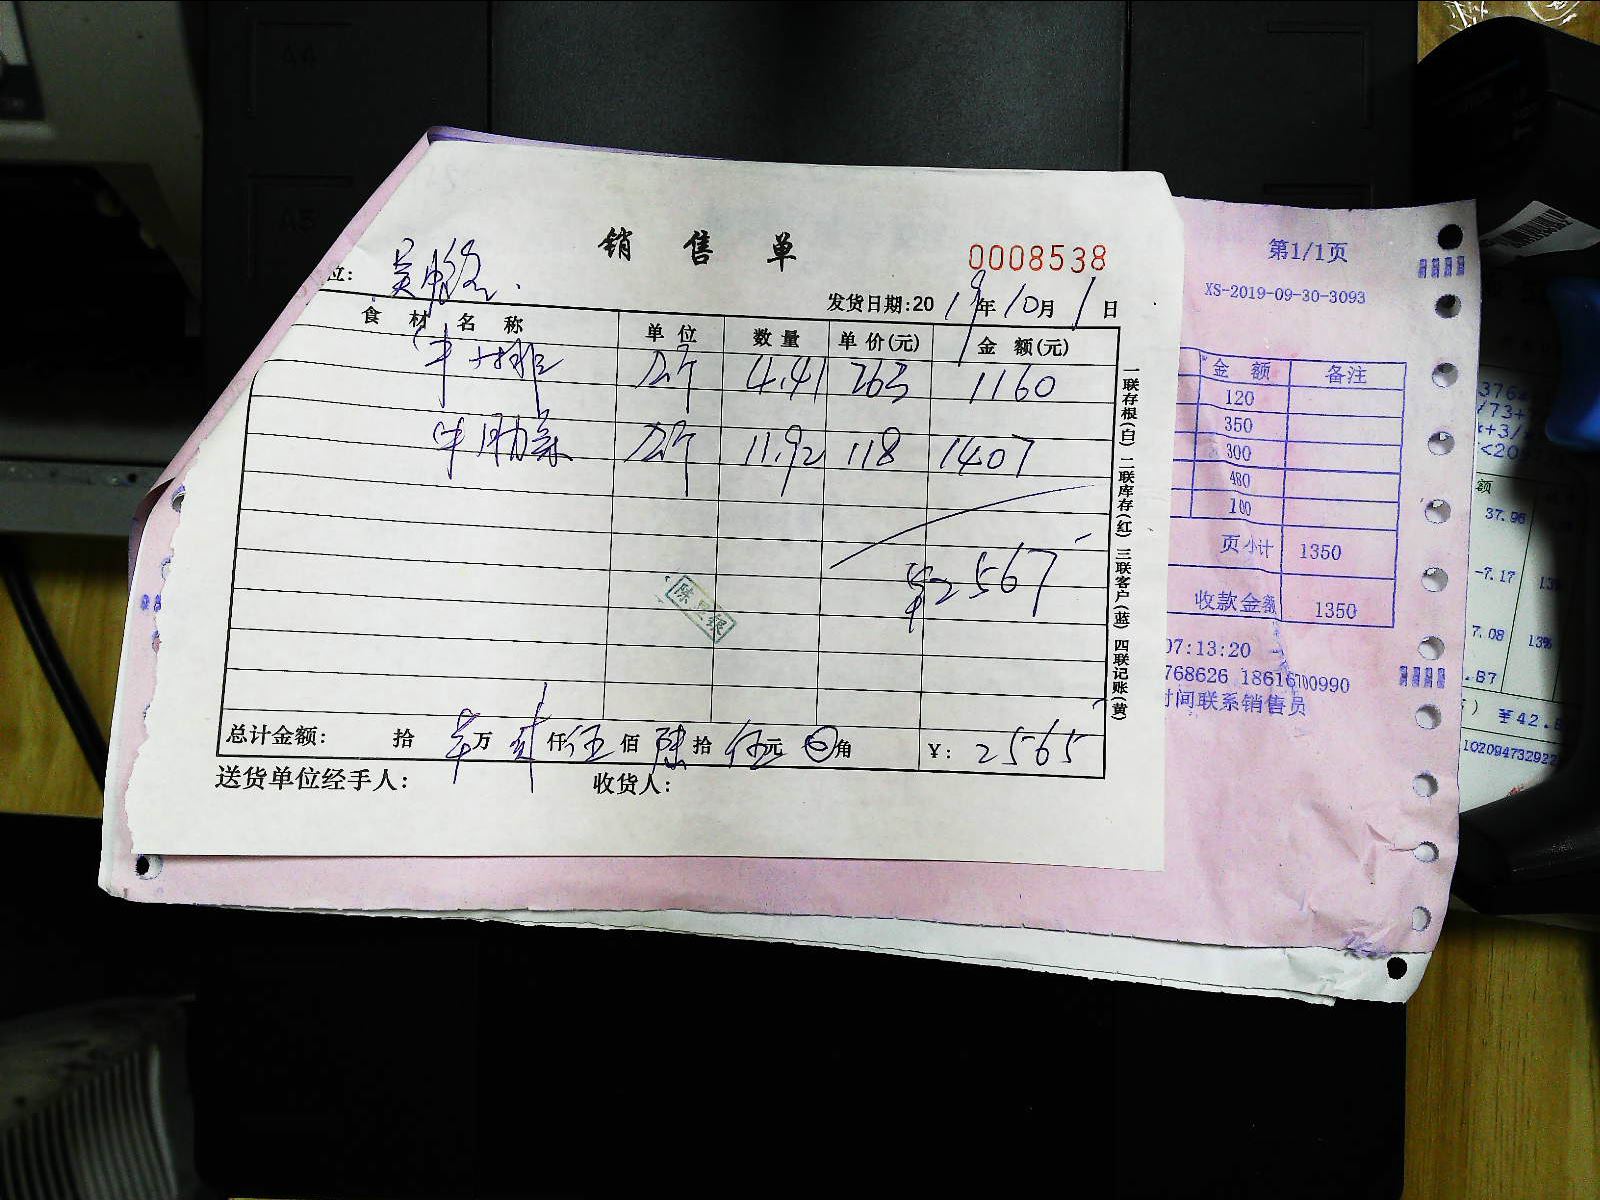 销 售 单
0008538
位: 吴
发货日期:2019年10月1日
食 材 名 称 单 位 数 量 单 价(元) 金 额(元)
牛排 公斤 4.41 263 1160
牛肋条 公斤 11.92 118 1407
¥2567
总计金额: 拾 万 贰仟伍佰陆拾伍元 角 ¥: 2565
送货单位经手人: 收货人:
一联存根(白) 二联库存(红) 三联客户(蓝) 四联记账(黄)
第1/1页
XS-2019-09-30-3093
金 额 备注
120
350
300
480
100
页小计 1350
收款金额 1350
07:13:20
768626 18616700990
时间联系销售员
额
37.96
-7.17 13%
7.08 13%
.87
102094732922